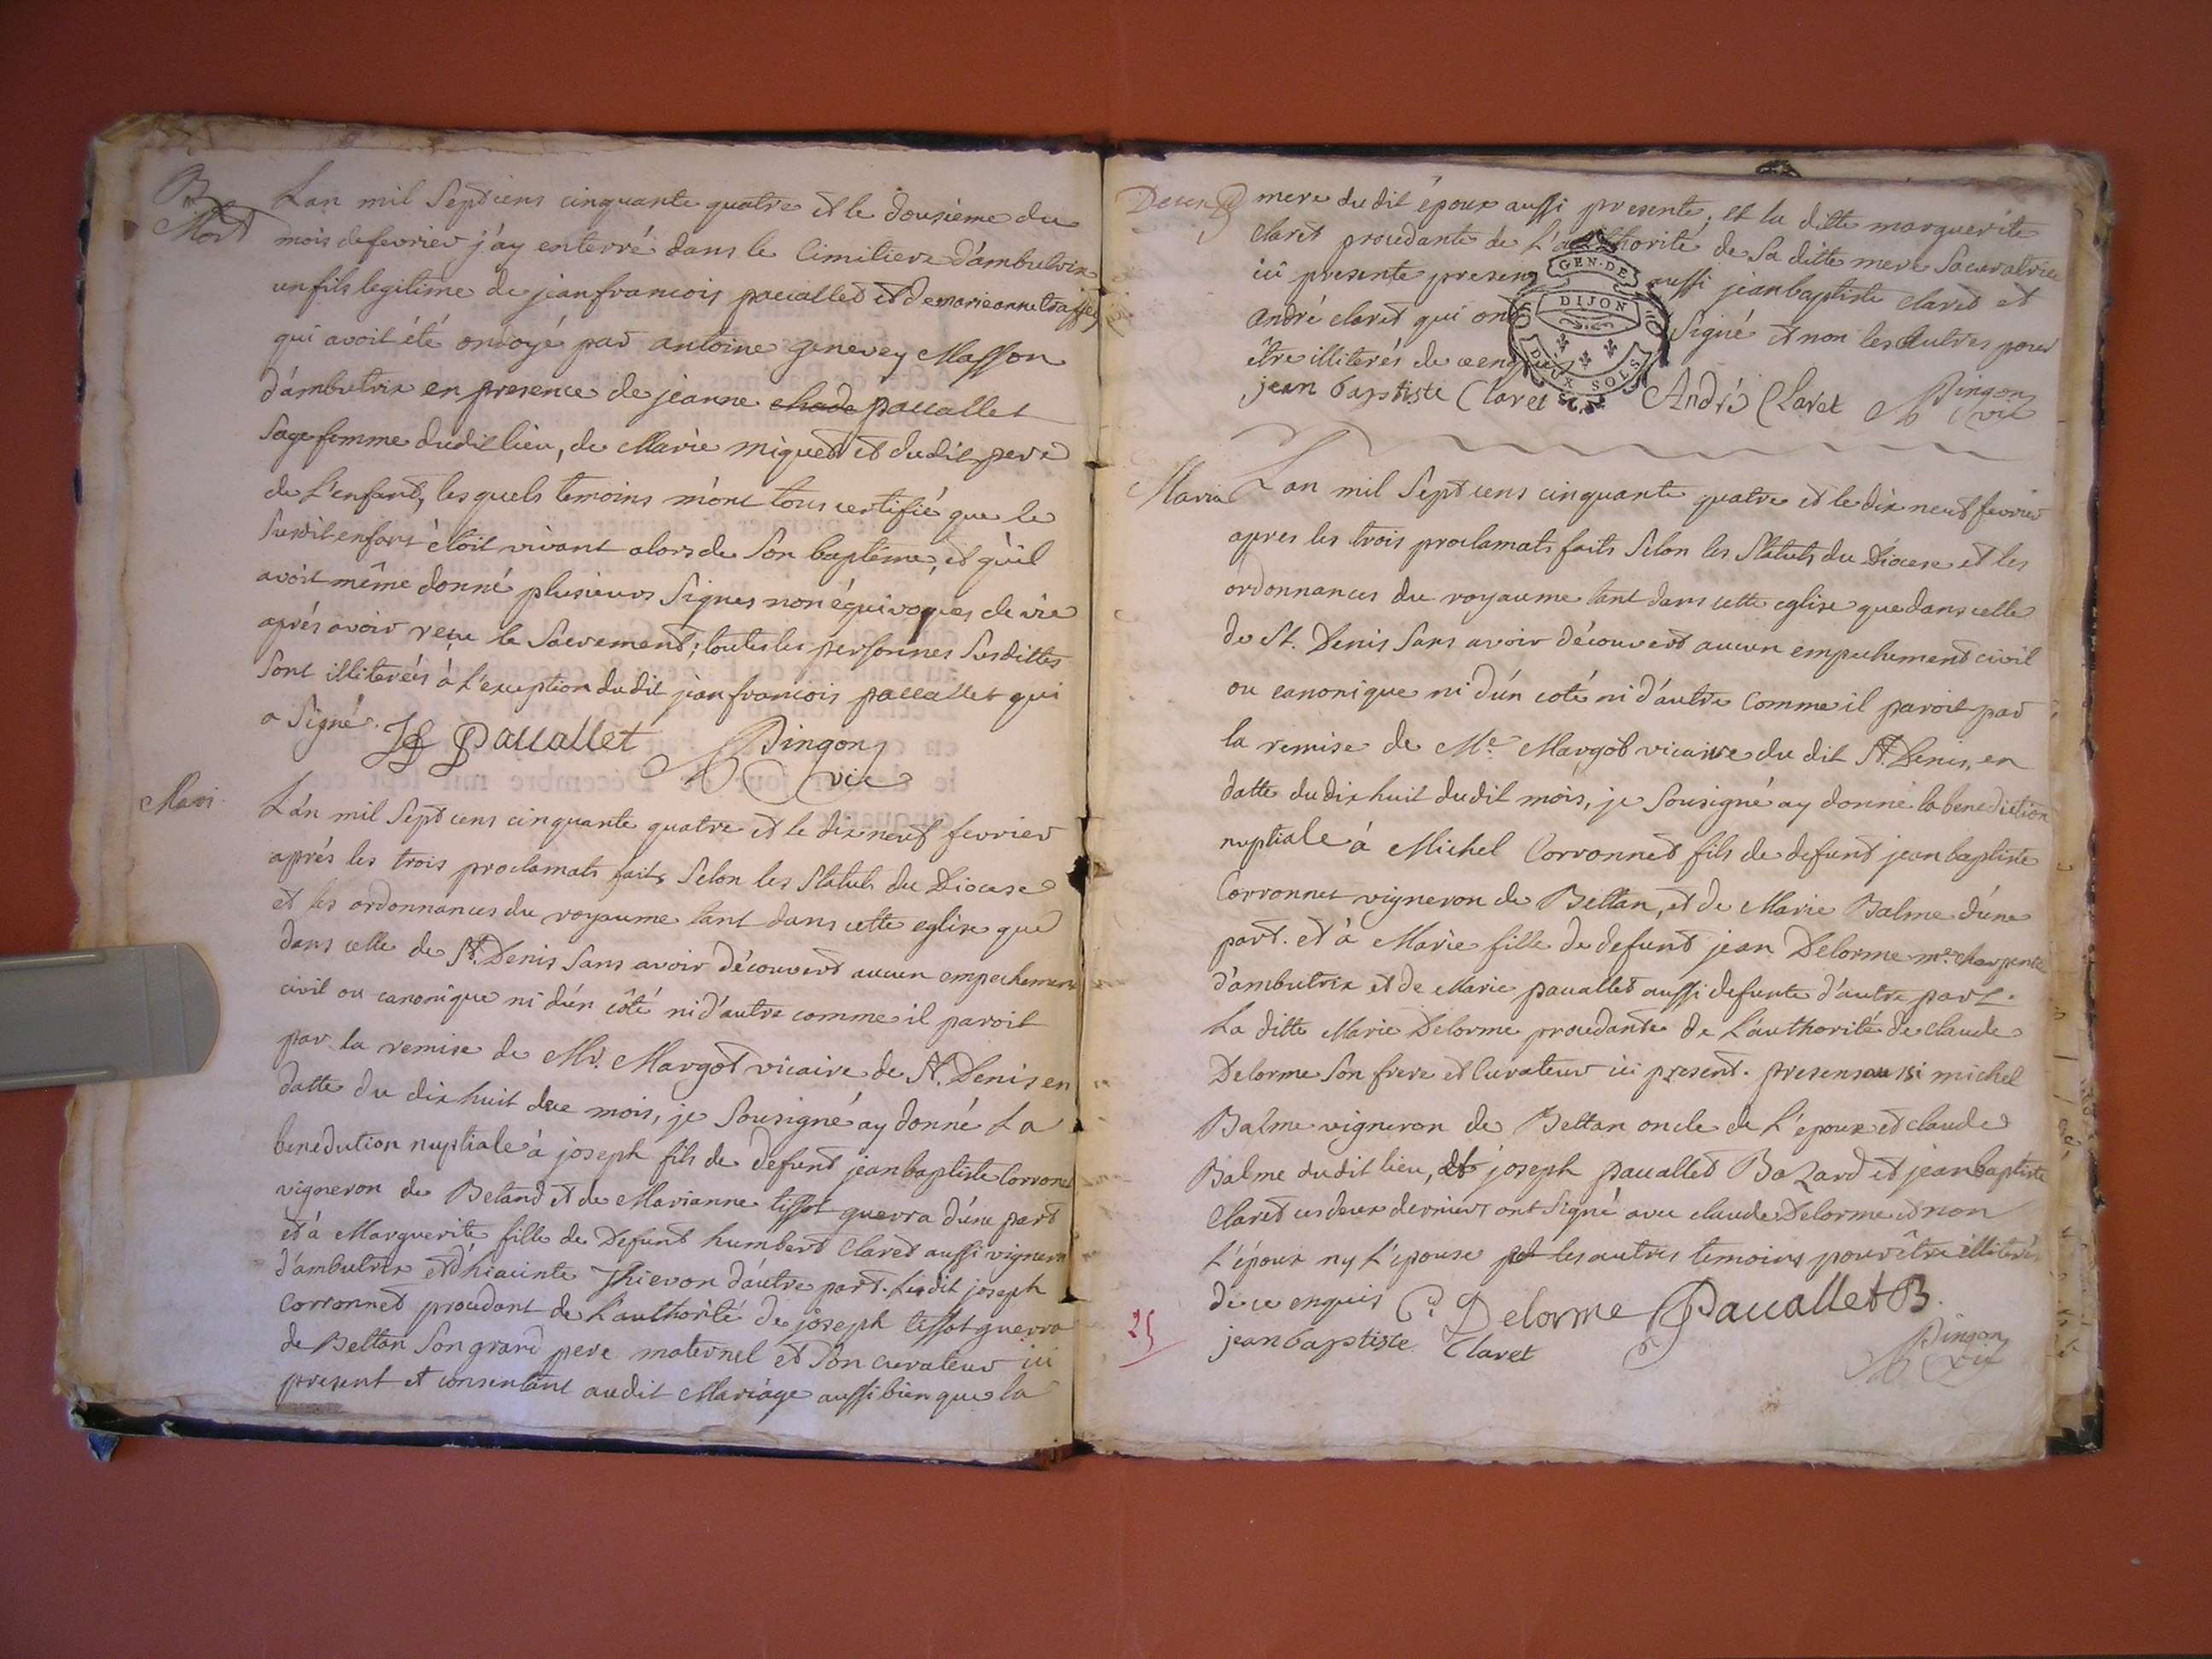 B
Mort
Lan mil Sept cens cinquante quatre et le dousieme du
mois de fevrier j'ay enterré dans le Cimitiere d'ambutrix
un fils legitime de jean francois pacallet et de marie anne
qui avoit été ondoyé par antoine genevey Masson
d'ambutrix en presence de jeanne pacallet
Sage femme dudit lieu, de Marie miguet et dudit pere
de L'enfant, lesquels temoins m'ont tous certifié que le
Susdit enfant étoit vivant alors de Son baptême, et qu'il
avoit même donné plusieurs Signes non équivoques de vie
aprés avoir reçu le Sacrement; toutes les personnes Susdittes
Sont illiterées à L'exception dudit jean francois pacallet qui
a Signé. Jf Pacallet Pingon
vic
Mari
L'an mil Sept cens cinquante quatre et le dix neuf fevrier
aprés les trois proclamats faits Selon les Statuts du Diocese
et les ordonnances du royaume tant dans cette eglise que
dans celle de St. Denis Sans avoir découvert aucun empechement
civil ou canonique ni d'un côté ni d'autre comme il paroit
par la remise de Mr. Margot vicaire de St. Denis en
datte du dix huit du mois, je Sousigné ay donné La
benediction nuptiale à joseph fils de defunt jean baptiste Corronet
vigneron de Betand et de Marianne tissot guerra d'une part
et à Marguerite fille de Defunt humbert Claret aussi vigneron
d'ambutrix et d'hiacinte Thievon d'autre part. Ledit joseph
Corronnet procedant de L'authorité de joseph tissot guerra
de Bettan Son grand pere maternel et Son curateur ici
present et consentant audit Mariage aussi bien que la
mere du dit époux aussi presente, et la ditte marguerite
Claret procedante de L'authorité de Sa ditte mere Sa curatrice
ici presente presens aussi jean baptiste Claret et
André claret qui ont Signé et non les Autres pour
être illiterés de ce enquis
GEN. DE
DIJON
DEUX SOLS
jean baptiste Claret André Claret Pingon
vic
Maria
Lan mil Sept cens cinquante quatre et le dix neuf fevrier
apres les trois proclamats faits Selon les Statuts du Diocese et les
ordonnances du royaume tant dans cette eglise que dans celle
de St. Denis Sans avoir découvert aucun empechement civil
ou canonique ni d'un coté ni d'autre Comme il paroit par
la remise de Me. Margot vicaire du dit St. Denis, en
datte du dix huit dudit mois, je Sousigné ay donné la benediction
nuptiale à Michel Corronnet fils de defunt jean baptiste
Corronnet vigneron de Bettan, et de Marie Balme d'une
part. et à Marie fille de defunt jean Delorme me. charpente
d'ambutrix et de Marie pacallet aussi defunte d'autre part.
La ditte Marie Delorme procedante de L'authorité de claude
Delorme Son frere et Curateur ici present. presens aussi michel
Balme vigneron de Bettan oncle de L'époux et claude
Balme dudit lieu, et joseph pacallet Bazard et jean baptiste
Claret ces deux derniers ont Signé avec claude Delorme et non
L'époux ny L'epouse les autres temoins pour être illiterés
de ce enquis C. Delorme Pacallet B.
25
jean baptiste Claret Pingon
vic